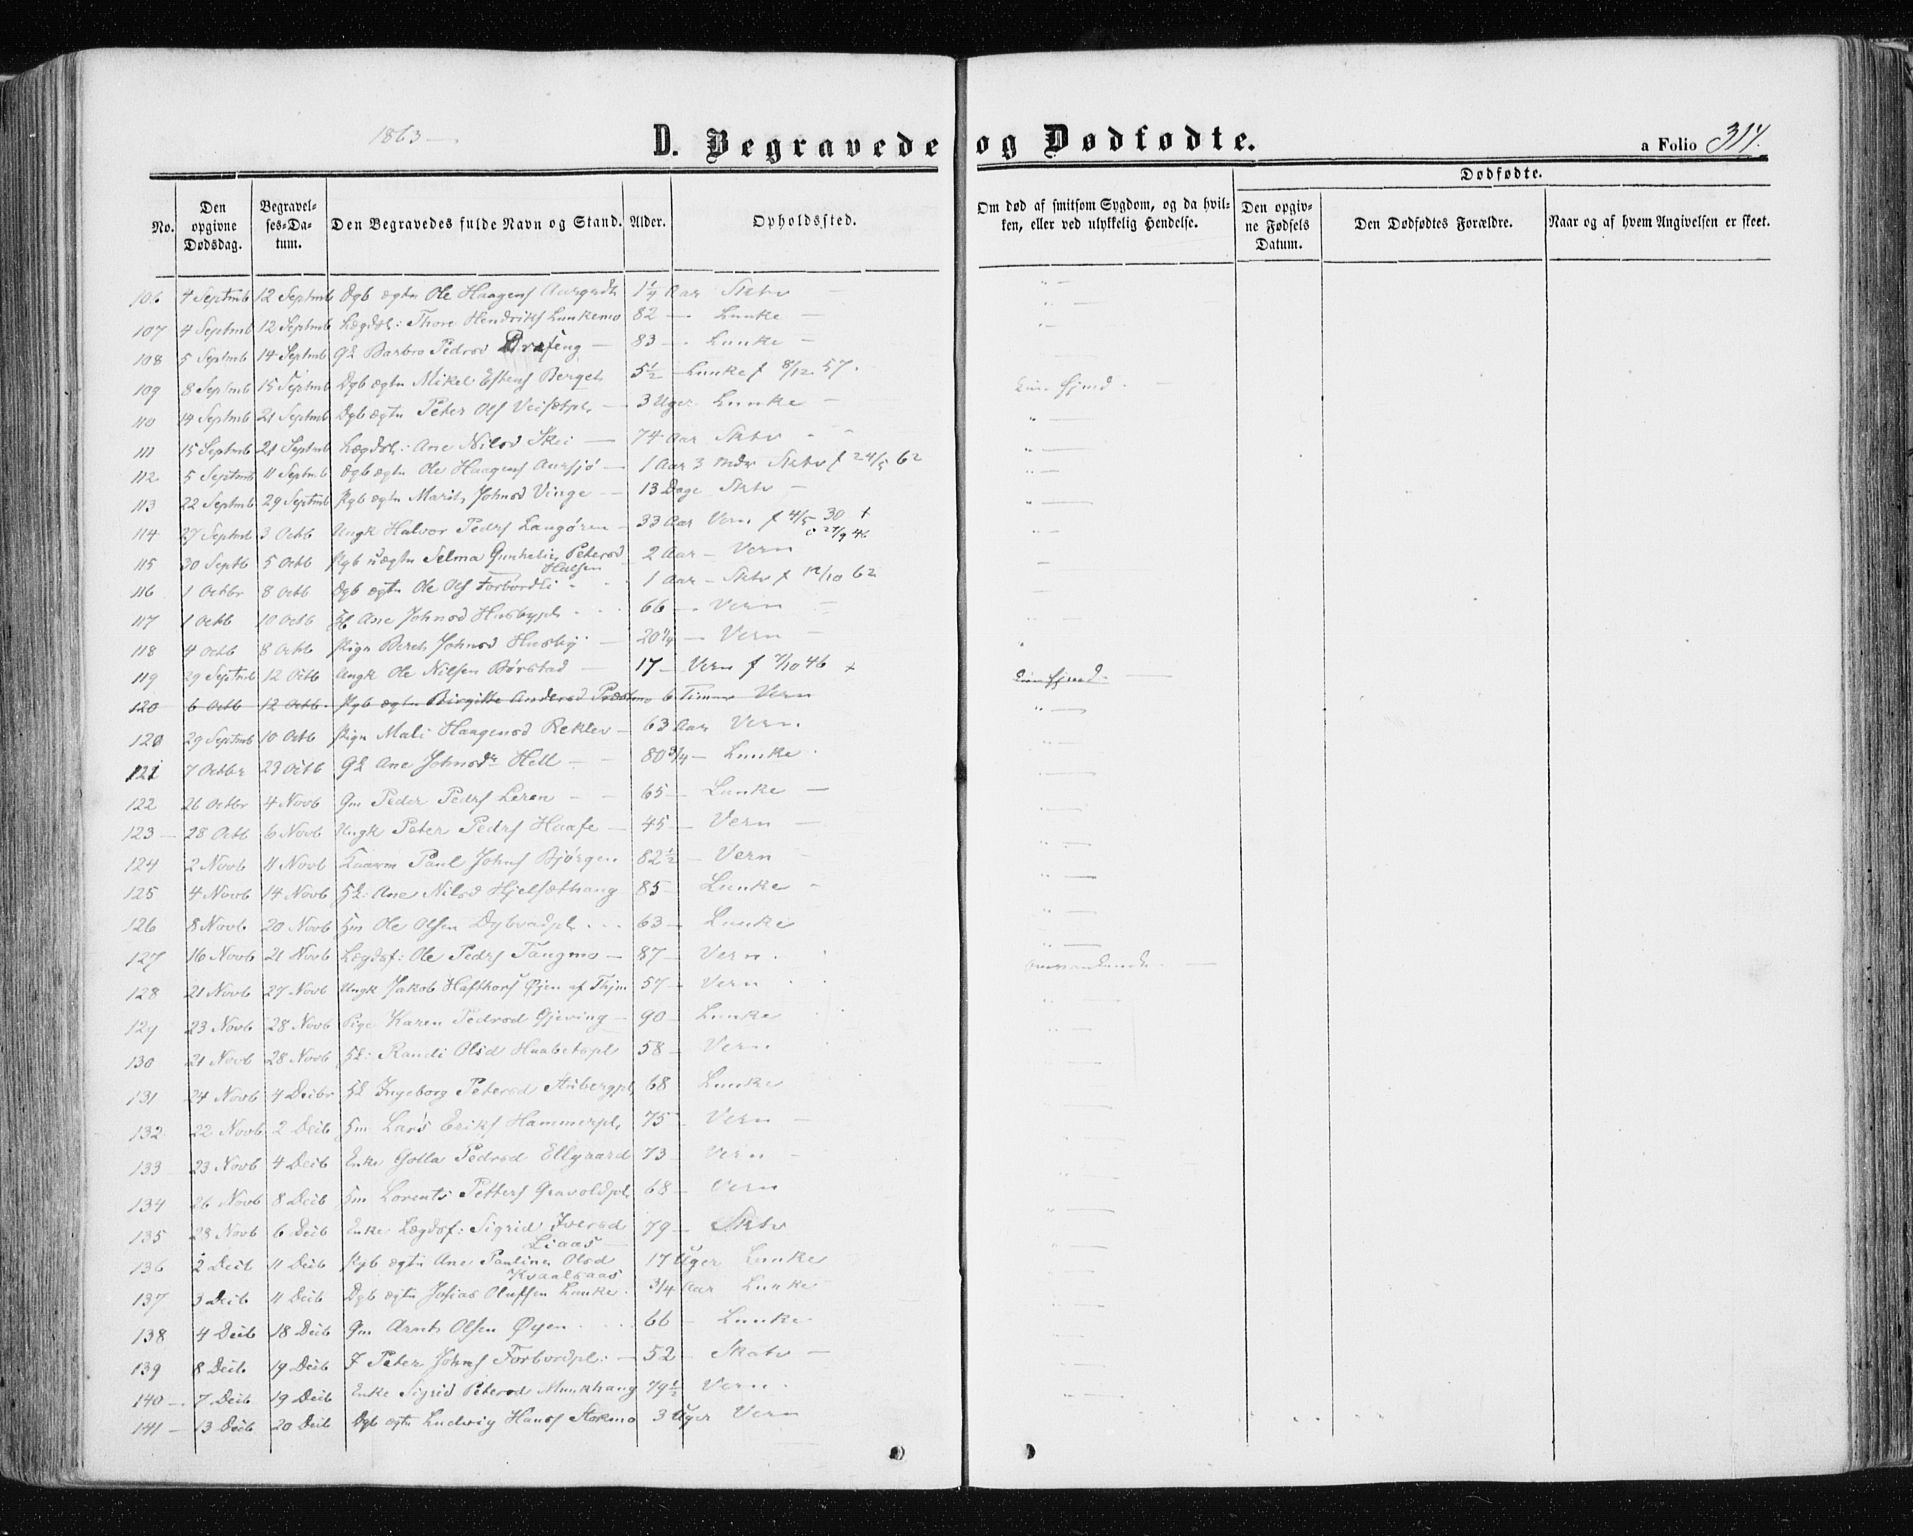 1863 —
D. Begravede og Dødfødte.
a Folio 317.
Dødfødte.
No. Den opgivne Dødsdag. Begravelses-Datum. Den Begravedes fulde Navn og Stand. Alder. Opholdssted. Om død af smitsom Sygdom, og da hvilken, eller ved ulykkelig Hendelse. Den opgivne Fødsels Datum. Den Dødfødtes Forældre. Naar og af hvem Angivelsen er skeet.
106 4 Septmb 12 Septmb Dgb ægtn Ole Haagens 1¼ Aar Sktv
107 4 Septmb 12 Septmb Lægdsl: Thore Hendriks Lunkemo 82 — Lunke —
108 5 Septmb 14 Septmb GE Barbro Pedrsd — 83 — Lunke —
109 8 Septmb 15 Septmb Dgb ægtn Mikel Estens Berget 5½ — Lunke f 8/12 57.
110 14 Septmb 21 Septmb Dgb ægtn Peter Ols — 3 Uger Lunke —
111 15 Septmb 21 Septmb Lægdsl: Ane Nilsd Skei — 74 Aar Sktv
112 5 Septmb 11 Septmb Dgb ægtn Ole Haagens Aursjø — 1 Aar 3 Mdr Sktv f 24/5 62
113 22 Septmb 29 Septmb Pgb ægtn Marit Johnsd Vinge — 13 Dage Sktv —
114 27 Septmb 3 Octb Ungk Halvor Pedrs Langøren — 33 Aar Vern f 4/5 30 +
c 27/9 46
115 30 Septb 5 Octb Pgb uægtn Selma Petersd 2 Aar — Vern
Halsen
116 1 Octbr 8 Octb Dgb ægtn Ole Ols Forbordli 1 Aar — Sktv f 12/10 62
117 1 Octb 10 Octb Ane Johnsd Husbypl 66 — Vern —
118 4 Octb 8 Octb Pign Beret Johnsd Husby — 20¼ — Vern —
119 29 Septmb 12 Octb Ungk Ole Nilsen Børstad — 17 — Vern f 7/10 46 +
120 6 Octb 12 Octb. Pgb ægtn Birgitte Andersd 6 Timer Vern
120 29 Septmb 10 Octb Pign Mali Haagensd Reklev — 63 Aar Vern.
121 7 Octbr 23 Octb GE Ane Johnsdr Hell — 80¾ — Lunke.
122 26 Octbr 4 Novb Gm Peder Pedrs Leren — 65 — Lunke —
123 — 28 Octb 6 Novb Ungk Peter Pedrs Haafe — 45 — Vern —
124 2 Novb 11 Novb Kaarm Paul Johns Bjørgen 82½ — Vern
125 4 Novb 14 Novb HE: Ane Nilsd Hjelsæthaug 85 — Lunke
126 8 Novb 20 Novb Hm Ole Olsen Dybvadpl. 63 — Lunke
127 16 Novb 21 Novb Lægdsf: Ole Pedrs Tangmo — 87 — Vern.
128 21 Novb 27 Novb Ungk Jakob Hafthors Øjen af Thjm 57 — Vern
129 23 Novb 28 Novb Pige Karen Pedrsd Gjeving — 90 — Lunke
130 21 Novb 28 Novb HE: Randi Olsd Haabetspl 58 — Vern
131 24 Novb 4 Deibr HE Ingeborg Petersd Stubergpl 68 Lunke
132 22 Novb 2 Deib Hm Lars Eriks Hammerpl. 75 — Vern —
133 23 Novb 4 Deib Enke Golla Pedrsd Ellgaard 73 — Vern —
134 26 Novb 8 Deib Hm Lorents Petters Gravoldpl 68 — Vern
135 28 Novb 6 Deib Enke Lægdsf: Sigrid Iversd 79 — Sktv
Liaas —
136 2 Deib 11 Deib Pgb ægtn Ane Pauline Olsd 17 Uger Lunke
Kvaalsaas
137 3 Deib 11 Deib Dgb ægtn Josias Olufsen Lunke. ¾ Aar Lunke
138 4 Deib 18 Deib Gm Arnt Olsen Øyen 66 — Lunke
139 8 Deib 19 Deib F Peter Johns Forbordpl: — 52 — Skatv —
140 — 7 Deib 19 Deib Enke Sigrid Petersd Munkhaug 79½ Vern.
141 — 13 Deib 20 Deib Dgb ægtn Ludvig Hans Stokmo 3 Uger Vern